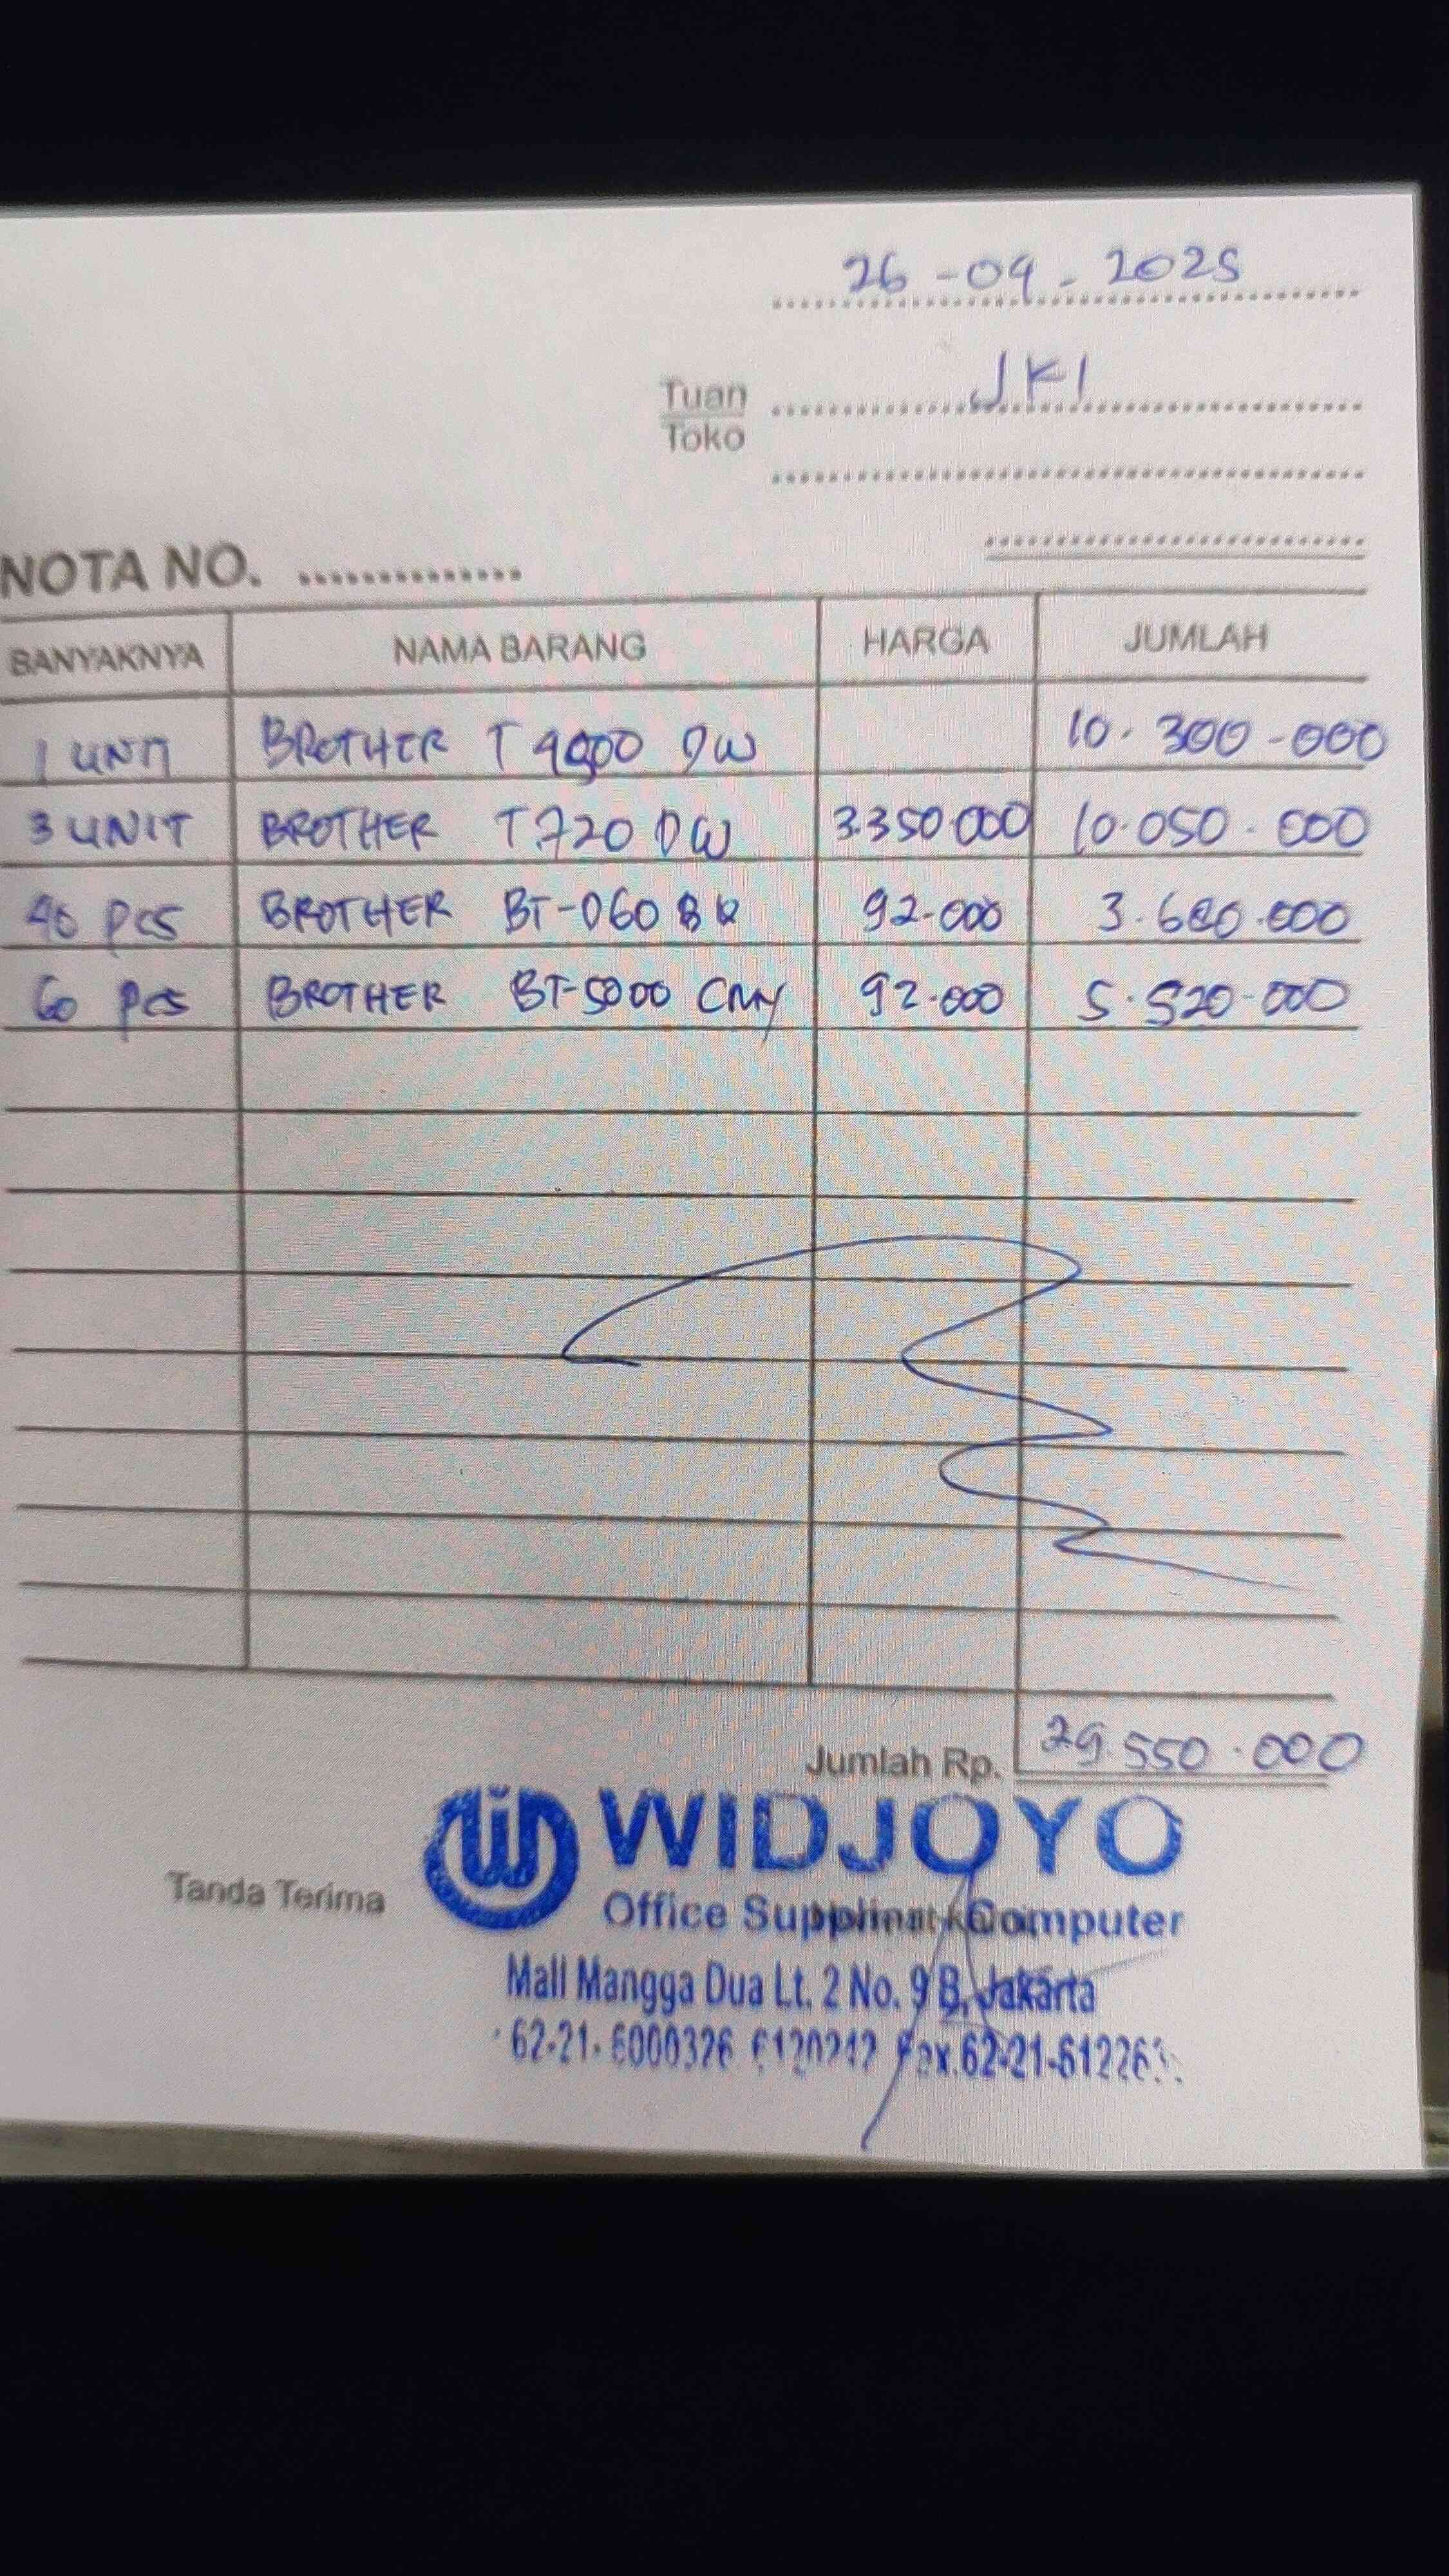 26-09-2025
Tuan JKI
Toko
NOTA NO. ..............
BANYAKNYA NAMA BARANG HARGA JUMLAH
1 UNIT BROTHER T4900 DW 10.300-000
3 UNIT BROTHER T720 DW 3.350.000 10.050.000
40 PCS BROTHER BT-D60 BK 92-000 3.680.000
60 PCS BROTHER BT-5000 CMY 92-000 5.520-000
Jumlah Rp. 29.550.000
WIDJOYO
Tanda Terima
Office Supplies Computer
Mall Mangga Dua Lt. 2 No. 9 B, Jakarta
62-21- 6000326 Fax.62-21-